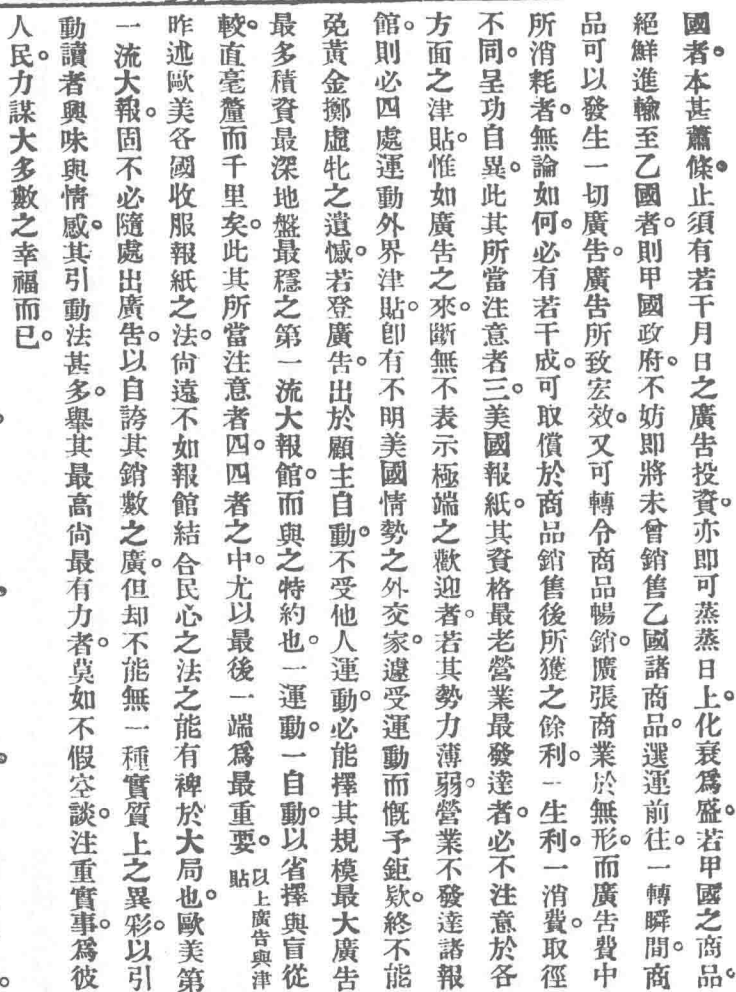 國者。本甚蕭條。止須有若干月日之廣告投資。亦即可蒸蒸日上。化衰爲盛。若甲國之商品。
絕鮮進輸至乙國者。則甲國政府。不妨即將未曾銷售乙國諸商品。選運前往。一轉瞬間。商
品可以發生一切廣告。廣告所致宏效。又可轉令商品暢銷。廣張商業於無形。而廣告費中
所消耗者。無論如何。必有若干成。可取償於商品銷售後所獲之餘利。一生利。一消費。取徑
不同。呈功自異。此其所當注意者三。美國報紙。其資格最老營業最發達者。必不注意於各
方面之津貼。惟如廣告之來。斷無不表示極端之歡迎者。若其勢力薄弱。營業不發達諸報
館。則必四處運動外界津貼。卽有不明美國情勢之外交家。遽受運動而慨予鉅欵。終不能
免黃金擲虛牝之遺憾。若登廣告。出於顧主自動。不受他人運動。必能擇其規模最大廣告
最多積資最深地盤最穩之第一流大報館。而與之特約也。一運動。一自動。以省擇與盲從
較。直毫釐而千里矣。此其所當注意者四。四者之中。尤以最後一端爲最重要。以上廣告與津貼
昨述歐美各國收服報紙之法。尙遠不如報館結合民心之法之能有裨於大局也。歐美第
一流大報。固不必隨處出廣告。以自誇其銷數之廣。但却不能無一種實質上之異彩。以引
動讀者興味與情感。其引動法甚多。舉其最高尙最有力者。莫如不假空談。注重實事。爲彼
人民。力謀大多數之幸福而已。